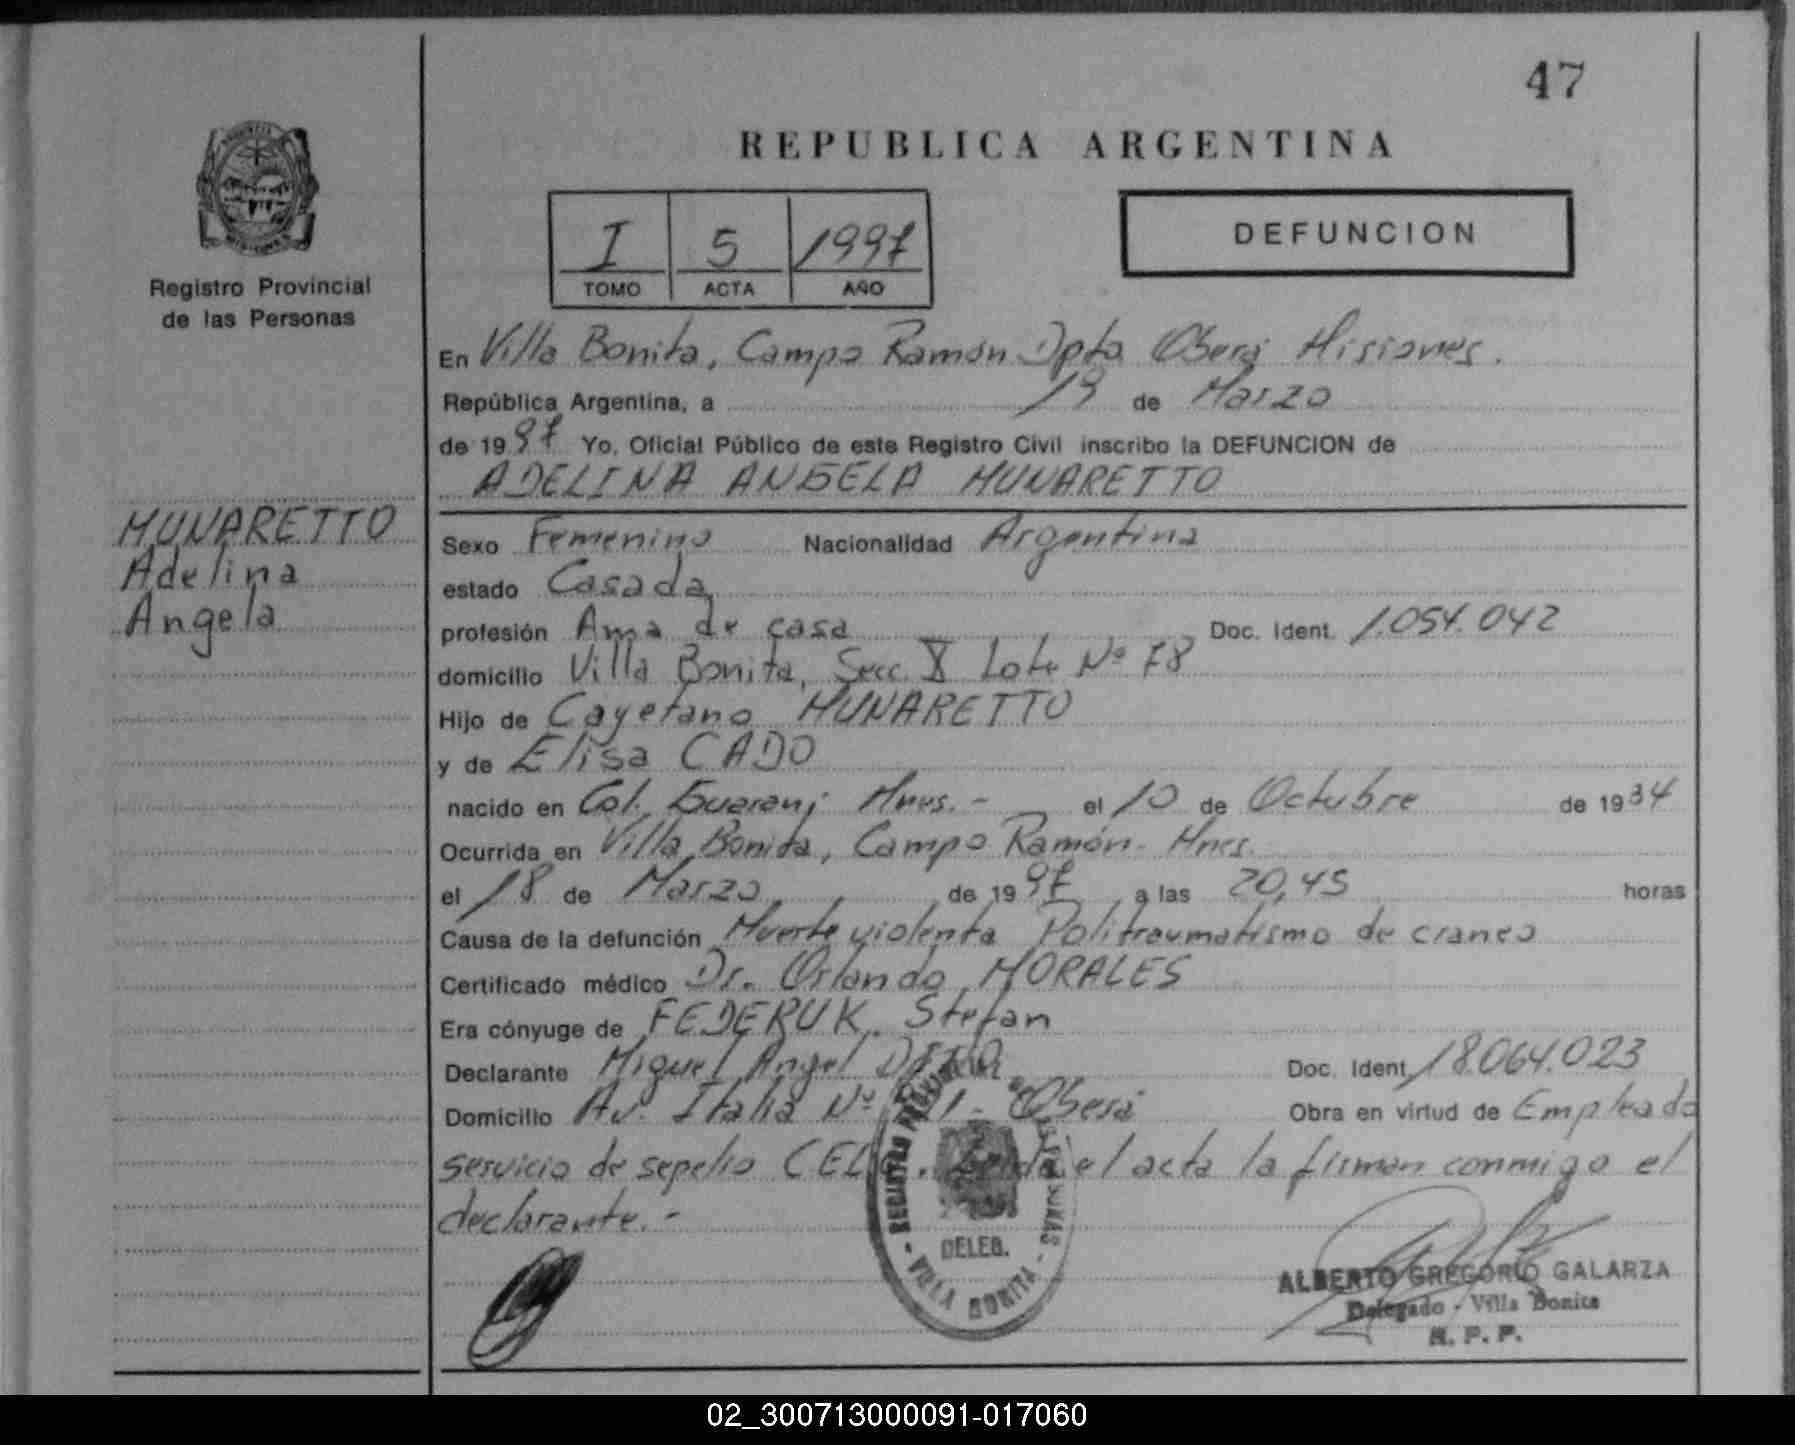 47
REPUBLICA ARGENTINA
Registro Provincial
de las Personas
I 5 1997
TOMO ACTA AÑO
DEFUNCION
En Villa Bonita, Campo Ramón Dpto Oberá Misiones.
República Argentina, a 19 de Marzo
de 1997 Yo, Oficial Público de este Registro Civil inscribo la DEFUNCION de
ADELINA ANGELA MUNARETTO
MUNARETTO
Adelina
Angela
Sexo Femenino Nacionalidad Argentina
estado Casada
profesión Ama de casa Doc. Ident. 1.054.042
domicilio Villa Bonita, Secc. X Lote Nº 78
Hijo de Cayetano MUNARETTO
y de Elisa CADO
nacido en Col. Guaraní Mnes.- el 10 de Octubre de 1934
Ocurrida en Villa Bonita, Campo Ramón. Mnes.
el 18 de Marzo de 1997 a las 20,45 horas
Causa de la defunción Muerte violenta Politraumatismo de craneo
Certificado médico Dr. Orlando MORALES
Era cónyuge de FEDERUK, Stefan
Declarante Miguel Angel Doc. Ident 18.064.023
Domicilio Av. Italia Nº - Oberá Obra en virtud de Empleado
servicio de sepelio el acta la firman conmigo el
declarante.-
REGISTRO PROVINCIAL DE LAS PERSONAS
DELEG.
- VILLA BONITA -
ALBERTO GREGORIO GALARZA
Delegado - Villa Bonita
R. P. P.
02_300713000091-017060